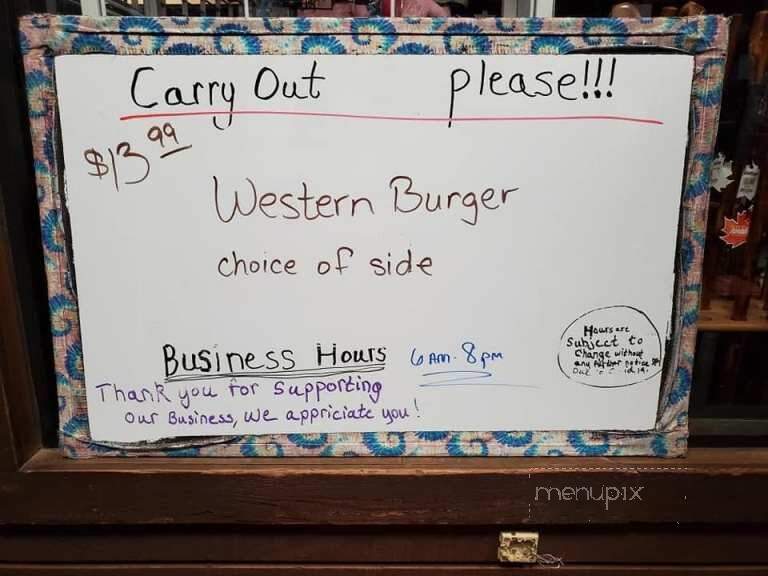 Carry Out please!!!
$13.99
Western Burger
choice of side
Business Hours 6 AM - 8 pm
Thank you for Supporting
our Business, We appriciate you!
Hours are
Subject to
Change without
any further notice
menupix